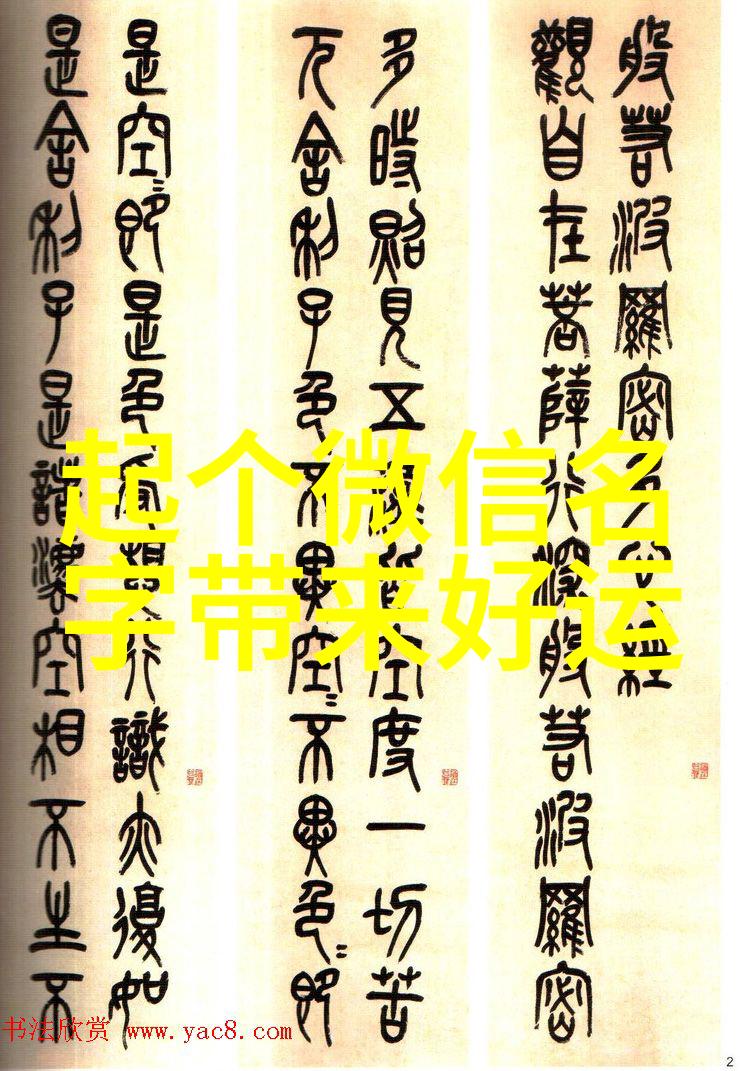 般若波羅密多心經
觀自在菩薩行深般若波羅密
多時照見五蘊皆空度一切苦
厄舍利子色不異空〻不異色〻即
是空〻即是色受想行識亦復如
是舍利子是諸灋空相不生不
起个微信名
字带来好运
书法欣赏 www.yac8.com
2